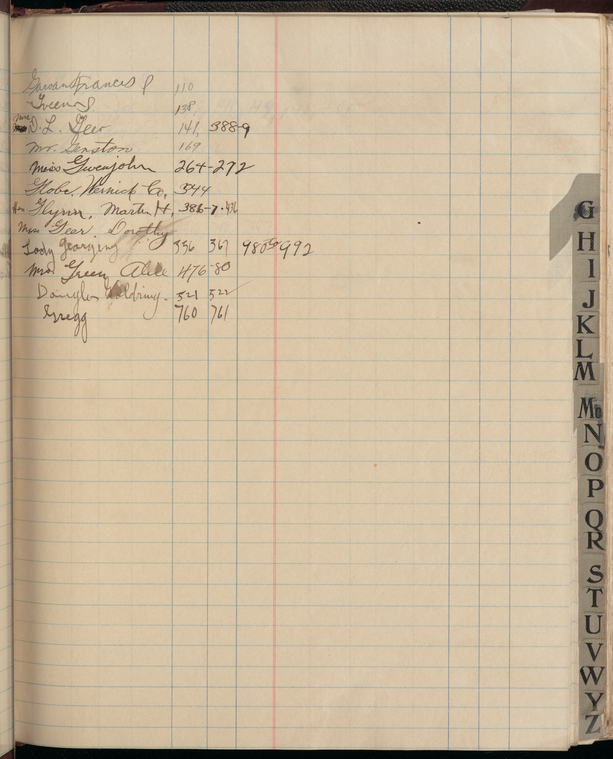 Garvan Francis P 110
Greens 138
Mrs D. L. Geer 141, 388-9
Mr. Genston 169
Miss Gwenjohn 264-272
Globe. Wernick Co. 344
Hon Glynn, Martin H. 386-7.
Miss Geer, Dorothy
Lady 356 367 980 992
Mrs Green Alice 476-80
521 522
Gregg 760 761
G
H
I
J
K
L
M
Mc
N
O
P
Q
R
S
T
U
V
W
Y
Z